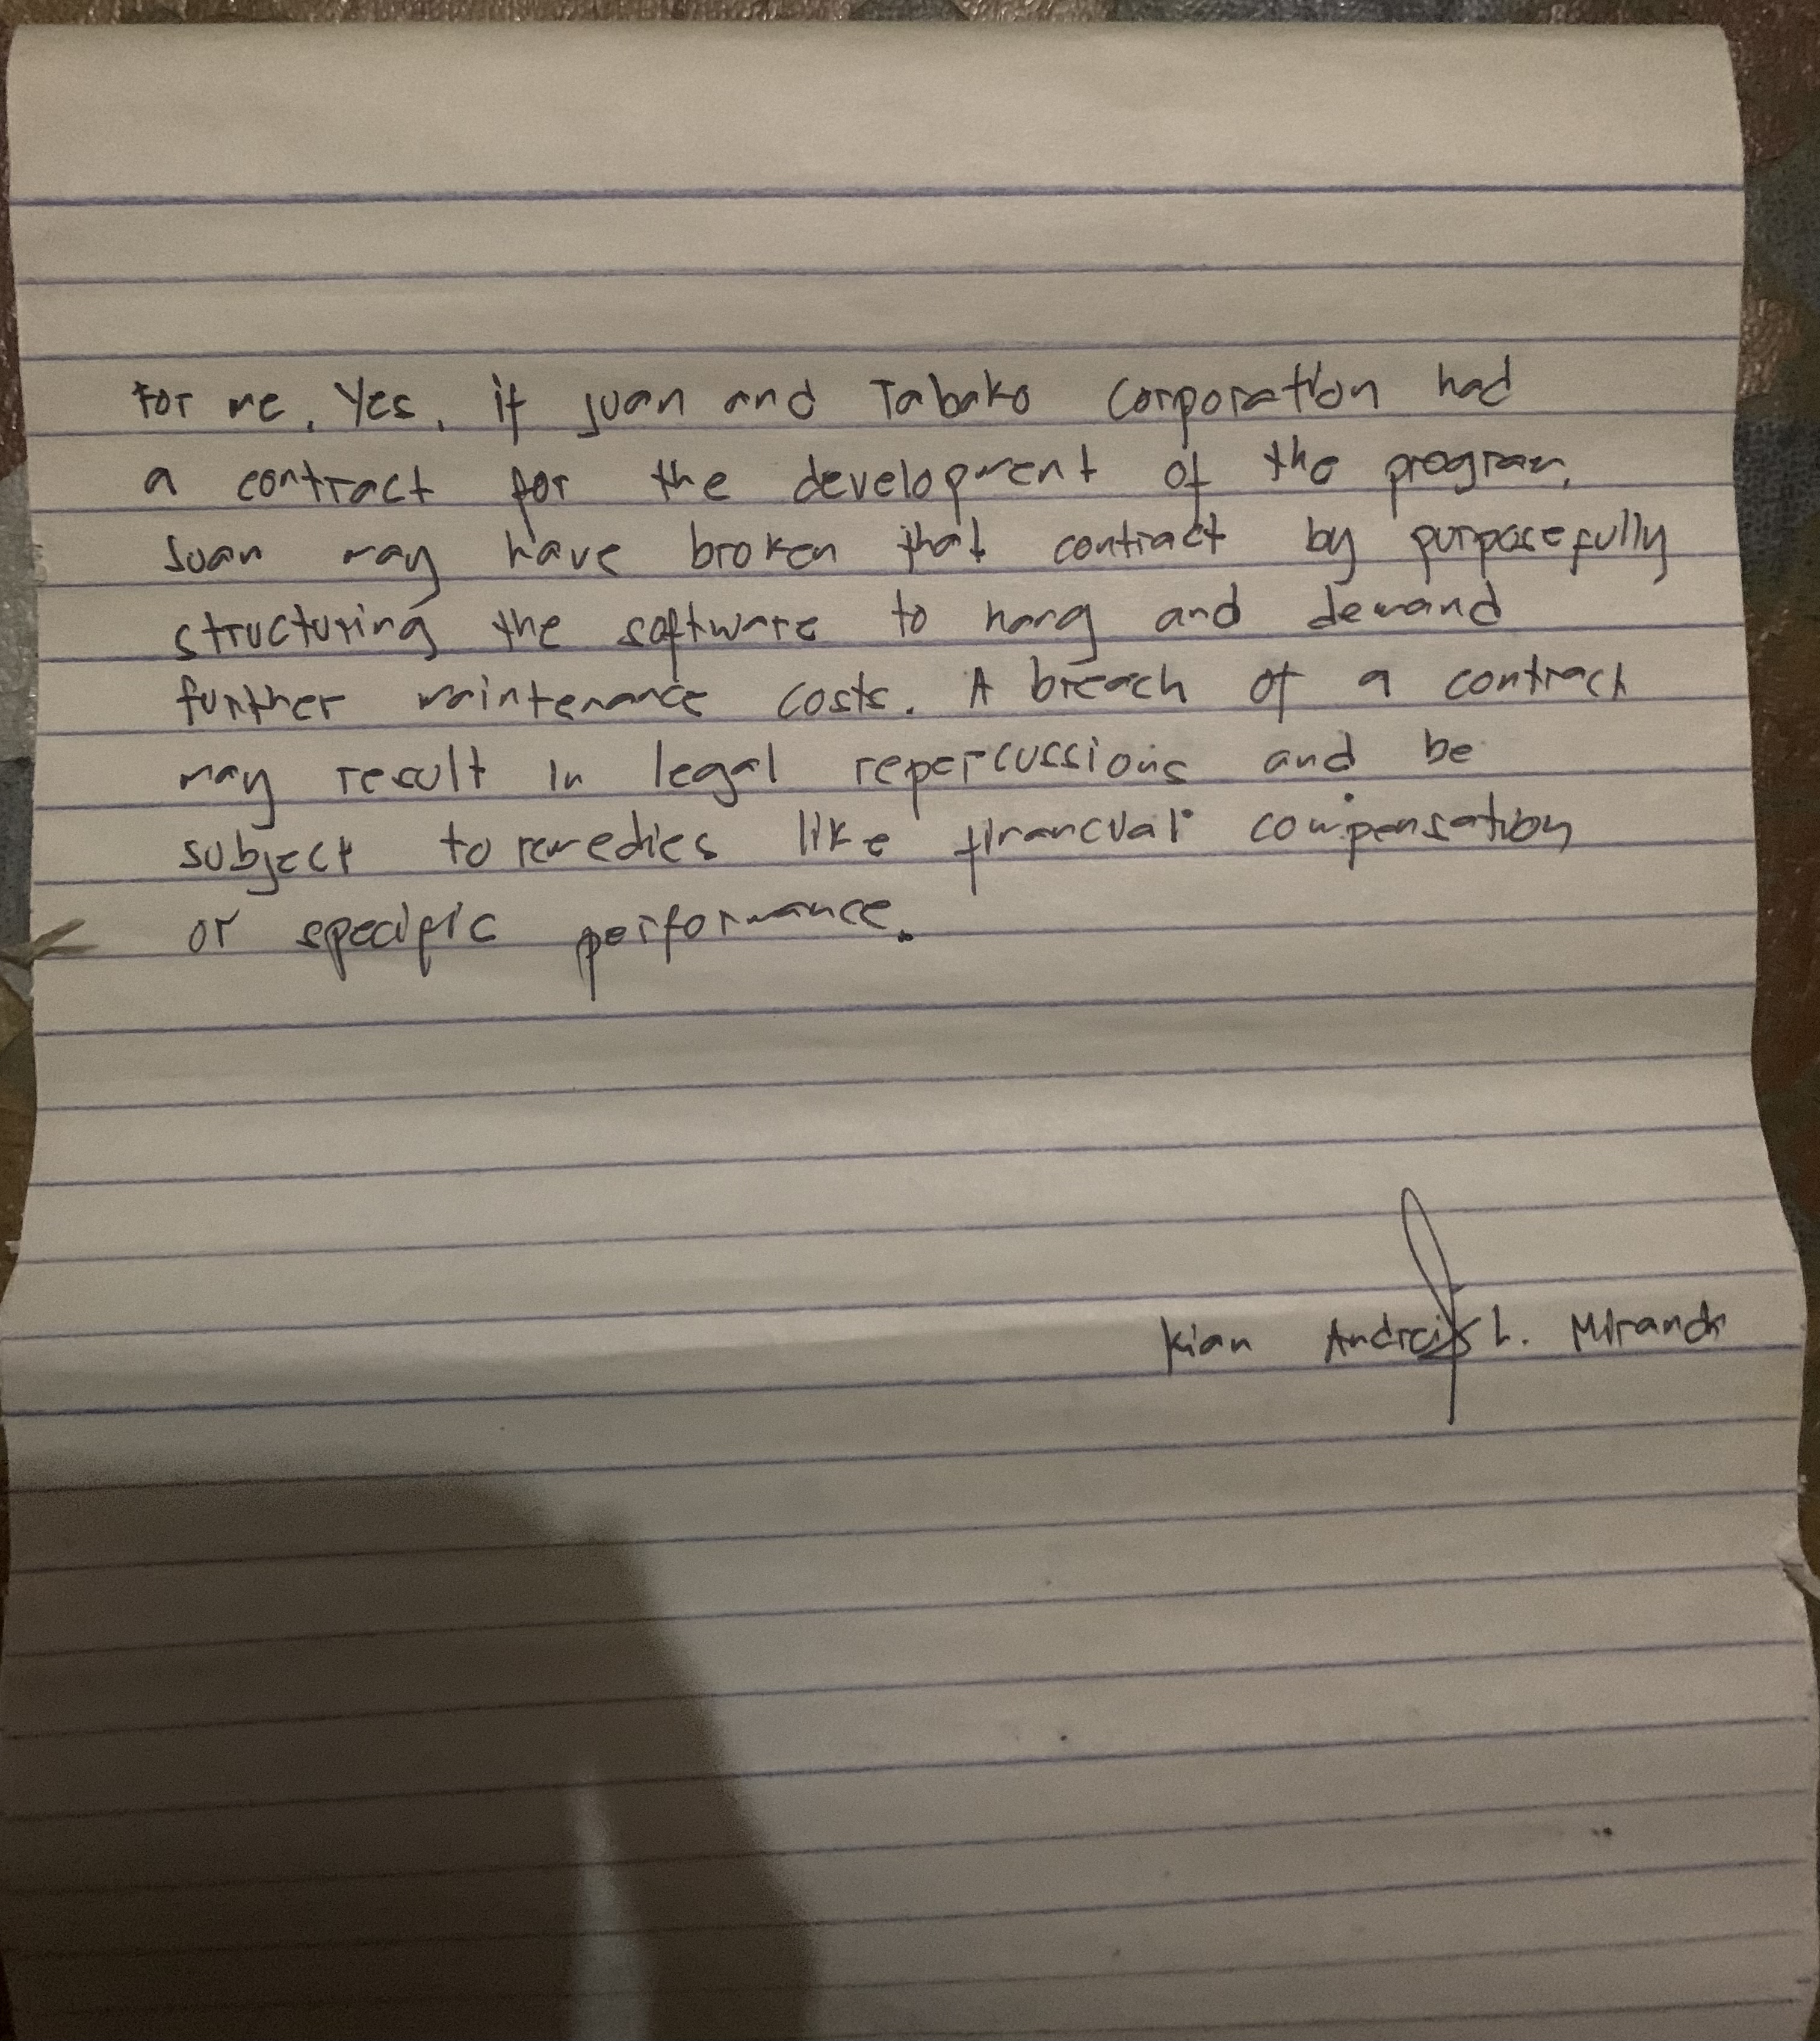 For me, Yes, if Juan and Tabako Corporation had
a contract for the development of the program,
Juan may have broken that contract by purposefully
structuring the software to hang and demand
further maintenance costs. A breach of a contract
may result in legal repercussions and be
subject to remedies like financial compensation
or specific performance.
Kian Andrei L. Miranda